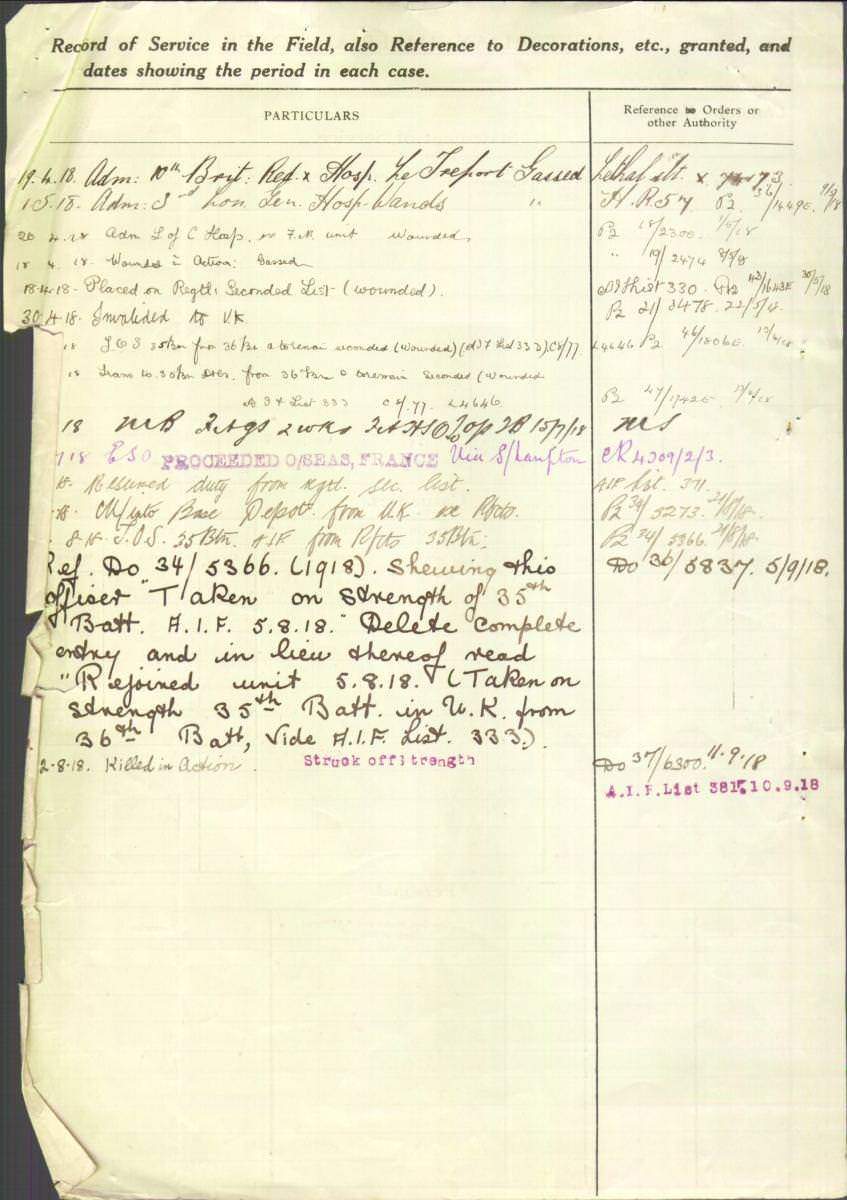 Record of Service in the Field, also Reference to Decorations, etc., granted, and
dates showing the period in each case.
PARTICULARS
Reference to Orders or
other Authority
19.4.18. Adm: 10th Brit: Red x Hosp. Le Treport Gassed
1.5.18. Adm: 3rd Lon. Gen. Hosp. Wands "
H.R 57 P2
20 4.18 Adm L of C Hosp. Wounded
P2 18/2300.
18 4 18. Wounded in Action: Gassed
" 19/2474 8/5/18
18.4.18. Placed on Regtl: Seconded List (wounded).
List 330.
30.4.18. Invalided to UK.
P2 21/2478. 22/5/18
18 T.O.S 35 Bn from 36 Bn to remain wounded (wounded) (AIF List 333) C8/77
L4646 P2 46/1806
18 Trans to 35 Bn from 36 Bn to remain seconded (Wounded
AIF List 333 C8/77. L4646.
P2 47/
18 MB 2 wks 15/7/18
MS
18 ESO PROCEEDED O/SEAS, FRANCE Via S/hampton
CR 4309/2/3.
18. Resumed duty from regtl. sec. list.
AIF list. 371.
18. M/into Base Depot. from U.K. ex Rfcts.
P2 34/5273.
8.18. T.O.S. 35 Btn. AIF from Rfcts 35 Btn:
P2 34/5366.
Ref. Do 34/5366. (1918). Shewing this
Do 36/5837. 5/9/18.
officer "Taken on Strength of 35th
Batt. A.I.F. 5.8.18." Delete complete
entry and in lieu thereof read
"Rejoined unit 5.8.18. (Taken on
Strength 35th Batt. in U.K. from
36th Batt, Vide A.I.F. List. 333.)
2-8-18. Killed in Action. Struck off strength
Do 37/6300. 11.9.18
A.I.F. List 381. 10.9.18